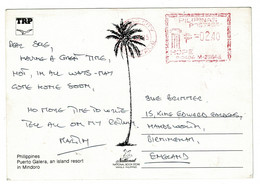 TRP
PHILIPPINES
02.40
DEAR SUE,
HAVING A GREAT TIME,
HOT, IN ALL WAYS - MAY
COME HOME SOON,
NO MORE TIME TO WRITE
TELL ALL ON MY RETURN
SUE
15, KING EDWARD GARDENS,
HANDSWORTH,
BIRMINGHAM,
ENGLAND
National
Philippines
Puerto Galera, an island resort
in Mindoro